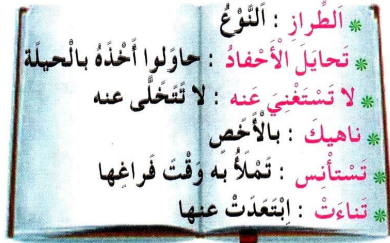 اَلطِّرازِ : اَلنَّوْعُ
تَحايَلَ الْأَحْفادُ : حاوَلوا أَخْذَهُ بالْحيلَة
لا تَسْتَغْنِيَ عَنه : لا تَتَخَلَّى عنه
ناهيكَ : بالْأَخَص
تَسْتأْنِس : تَمْلَأُ بَه وَقْتَ فَراغِها
تَناءَتْ : اِبْتَعَدَتْ عنها